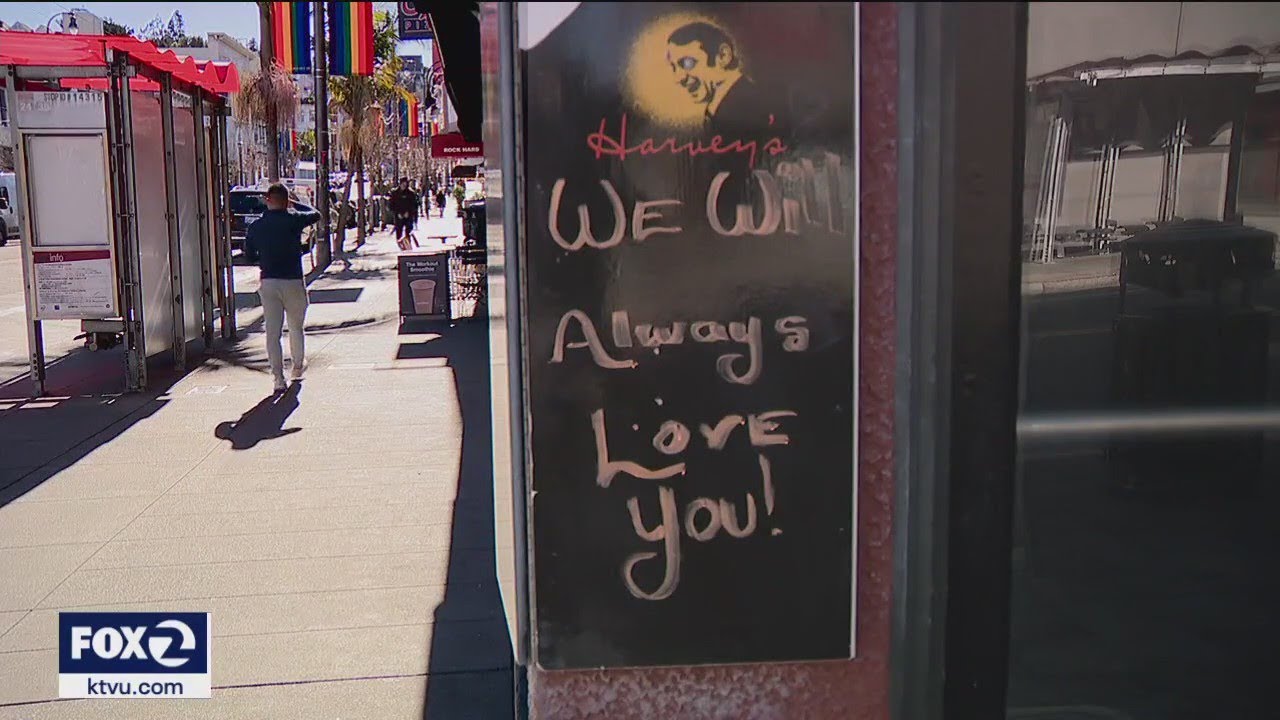 Harvey's
We Will
Always
Love
You!
ROCK HARD
The Workout
Smoothie
info
FOX 2
ktvu.com